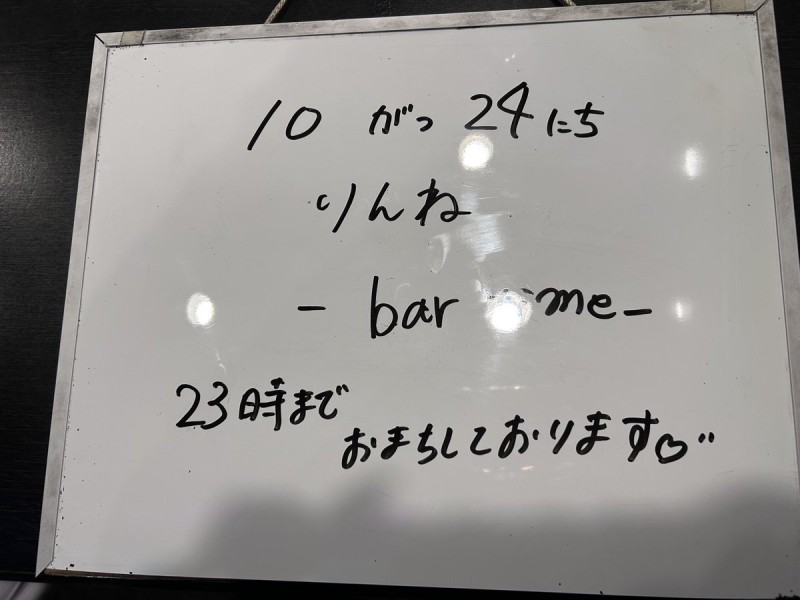 10 がつ 24にち
りんね
- bar
23時まで
おまちしております♡"